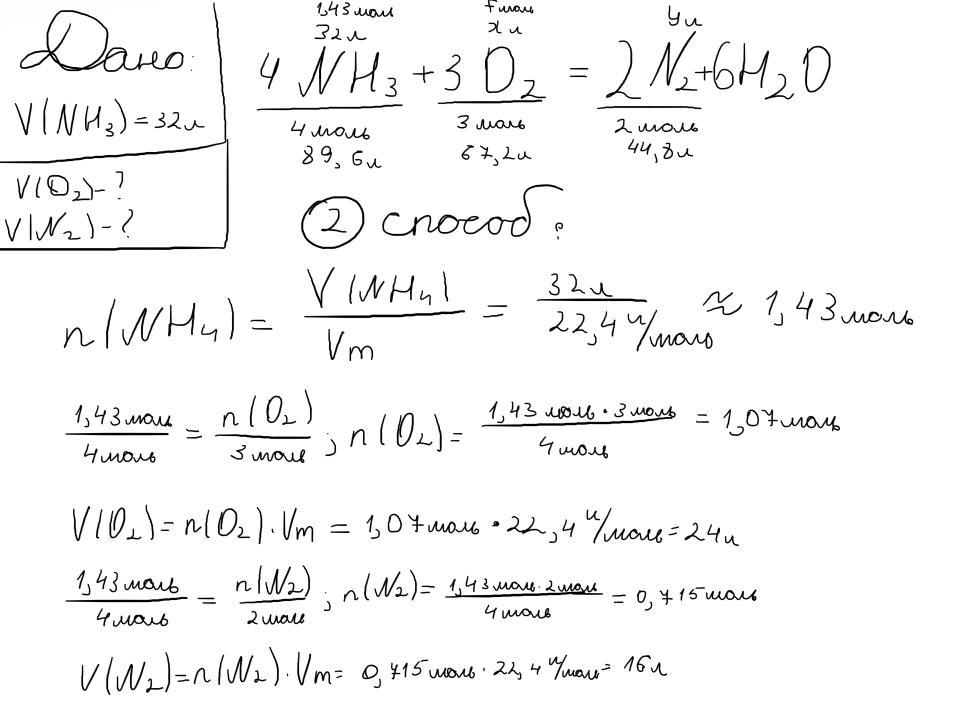 Дано:
V(NH₃) = 32л
V(O₂) - ?
V(N₂) - ?
1,43 моль ? моль
32л x л y л
4 NH₃ + 3 O₂ = 2 N₂ + 6H₂O
4 моль 3 моль 2 моль
89,6л 67,2л 44,8л
② способ:
n(NH₄) = V(NH₄) / Vm = 32л / 22,4 л/моль ≈ 1,43 моль
1,43 моль / 4 моль = n(O₂) / 3 моль ; n(O₂) = 1,43 моль · 3 моль / 4 моль = 1,07 моль
V(O₂) = n(O₂) · Vm = 1,07 моль · 22,4 л/моль = 24л
1,43 моль / 4 моль = n(N₂) / 2 моль ; n(N₂) = 1,43 моль · 2 моль / 4 моль = 0,715 моль
V(N₂) = n(N₂) · Vm = 0,715 моль · 22,4 л/моль = 16л